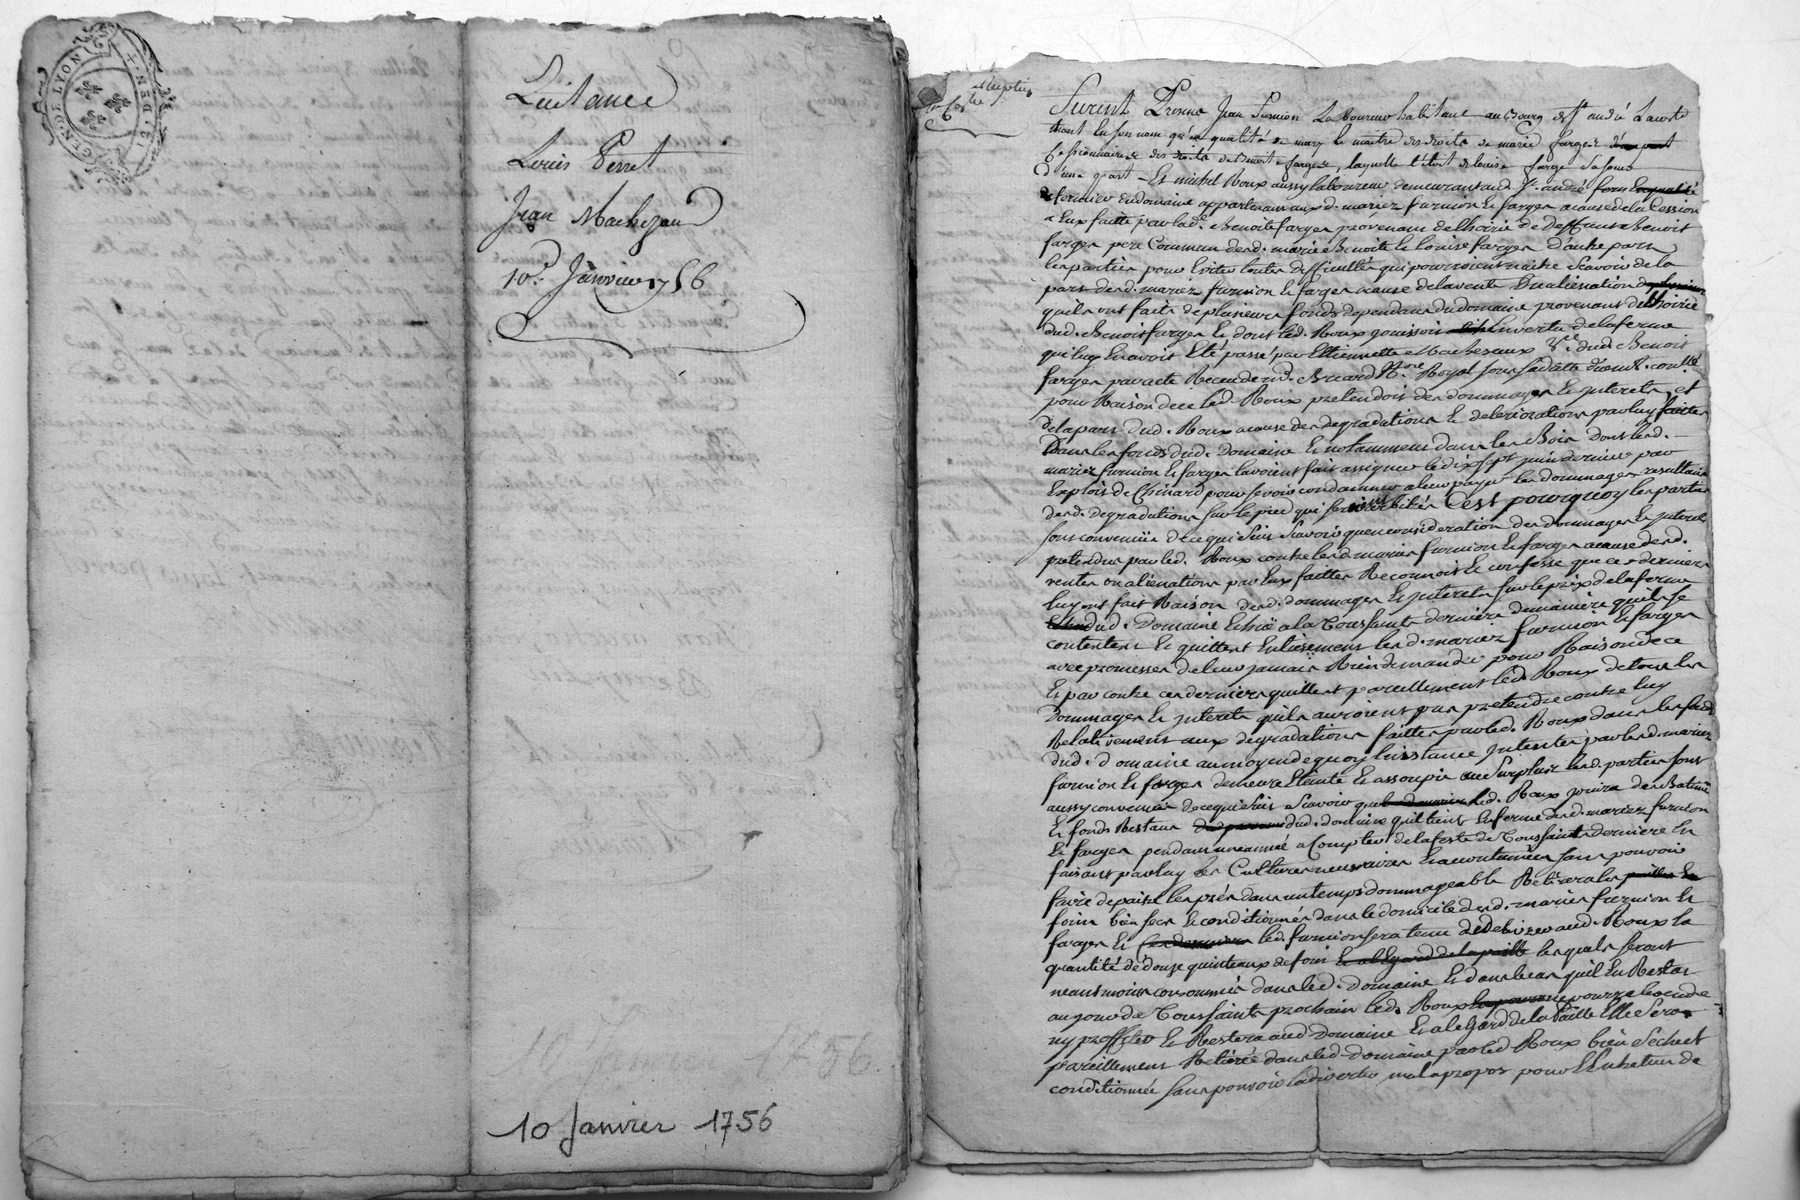 GEN. DE LYON
Quitance
Louis Perret
Jean Machezaud
10e. Janvier 1756
10 Janvier 1756
10 Janvier 1756
furent presens Jean furnion Laboureur habitant au Bourg de St. andré Lacoste
tant en son nom qu'en qualité de mary et maitre des droits de marie farges
Cessionnaire des droits de Benoite farges, laquelle l'etoit de Louise farge sa soeur
d'une part Et michel Roux aussy laboureur demeurant aud. St. andré
fermier du domaine appartenant auxd. mariez furnion et farges a cause de la Cession
a Eux faitte par lad. Benoite farges provenant de l'hoirie de deffunt Benoit
farges pere Commun desd. marie Benoite et louise farges d'autre part
les parties pour Eviter toutes difficultés qui pourroient naitre scavoir de la
part desd. mariez furnion et farges a cause de la vente et alienation
qu'ils ont faite de plusieurs fonds dependans du domaine provenant de l'hoirie
dud. Benoit farges Et dont led. Roux jouissoit en vertu de la ferme
qui luy en avoit Eté passé par Ettiennette Machezaux Vve. dud. Benoit
farges par acte Receu de nd. Bricard Nre. Royal sous sa datte
pour Raison de ce led. Roux pretendoit des dommages et interets, et
de la part dud. Roux a cause des degradations et deteriorations par luy faittes
Dans les fonds dud. Domaine Et notamment dans les Bois dont lesd.
mariez furnion et farges l'avoient fait assigner le dix sept juin dernier par
Exploit de Chinard pour se voir condamner a leur payer les dommages resultants
desd. degradations sur le pied qui seroient C'est pourquoy les parties
sont convenües de ce qui suit scavoir qu'en consideration des dommages et interets
pretendus par led. Roux contre lesd. mariez furnion et farges a cause desd.
ventes ou alienations par Eux faittes Reconnoit et confesse que ces derniers
luy ont fait Raison desd. dommages et interets sur le prix de la ferme
dud. Domaine Echüe a la Toussaints derniere de maniere qu'il se
contentent et quittent Entierement lesd. mariez furnion et farges
avec promesses de leur jamais Rien demander pour Raison de ce
Et par contre ces derniers quittent pareillement led. Roux de tous les
Dommages et interets qu'ils auroient pu pretendre contre luy
Relativement aux degradations faittes par led. Roux dans les fonds
dud. domaine au moyen de quoy l'instance intentée par lesd. mariez
furnion et farges demeure Eteinte et assoupie au surplus lesd. parties sont
aussy convenües de ce qui suit scavoir que led. Roux jouira des Batimens
et fonds Restans dud. domaine qu'il tient En ferme desd. mariez furnion
et farges pendant une année a Compter de la feste de Toussaints derniere En
faisant par luy les Cultures necessaires Et accoutumées sans pouvoir
faire depaitre les prés dans un temps dommageable Retirera les
foins bien secs et conditionnés dans le domicile desd. mariez furnion et
farges Et led. furnion sera tenu de delivrer aud. Roux la
quantité de douze quinteaux de foin lesquels seront
neantmoins consommés dans led. domaine Et dans le cas qu'il En Restat
au jour de Toussaints prochain led. Roux ne pourra le vendre
ny proffiter Et Restera aud. Domaine Et a legard de la paille Elle sera
pareillement Retirée dans led. domaine par led. Roux bien seche et
conditionnée sans pouvoir la divertir mal a propos pour l'Entretien de